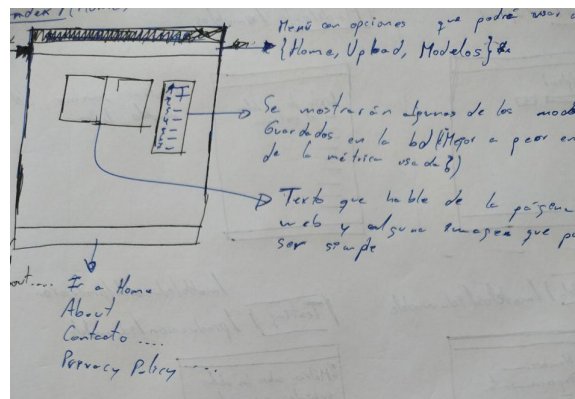 index / (Home)
Menú con opciones que podrá usar
{Home, Upload, Modelos}
Se mostrarán algunos de los mod
Guardados en la bd (Mejor a peor en
de la métrica usada})
Texto que hable de la página
web y alguna imagen que p
ser simple
out.... Ir a Home
About
Contacto ....
Privacy Policy .....